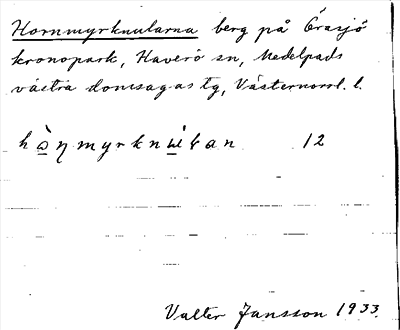 Hornmyrknularna berg på Örasjö
kronopark, Haverö sn, Medelpads
västra domsagas tg, Västernorrl. l.
hò̱ŋmyrknɯ̱́ɽan 12
Valter Jansson 1933.